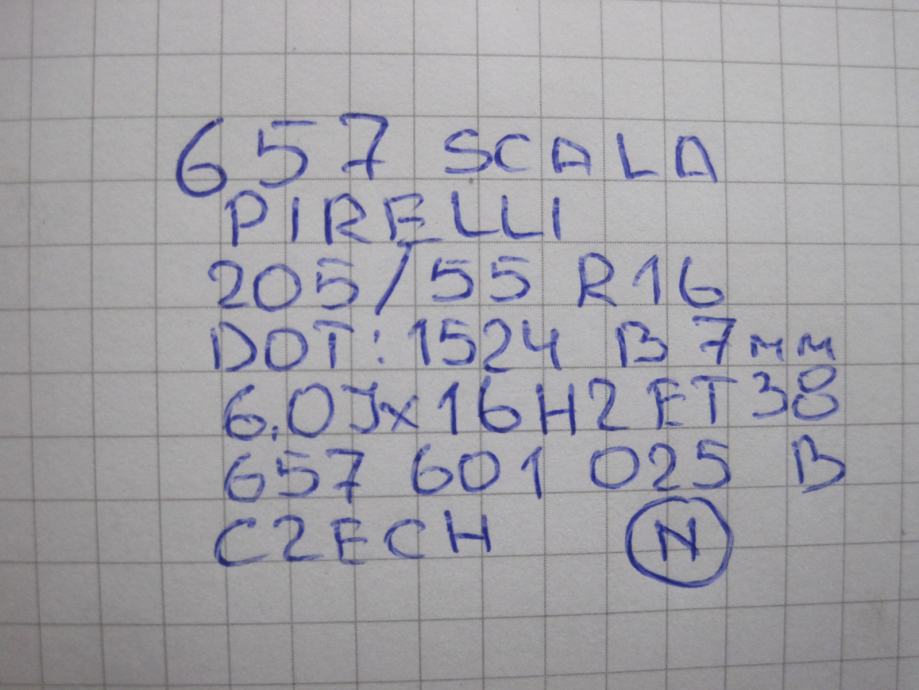 657 SCALA
PIRELLI
205/55 R16
DOT: 1524 B 7мм
6.0Jx16H2 ET38
657 601 025 B
CZECH N